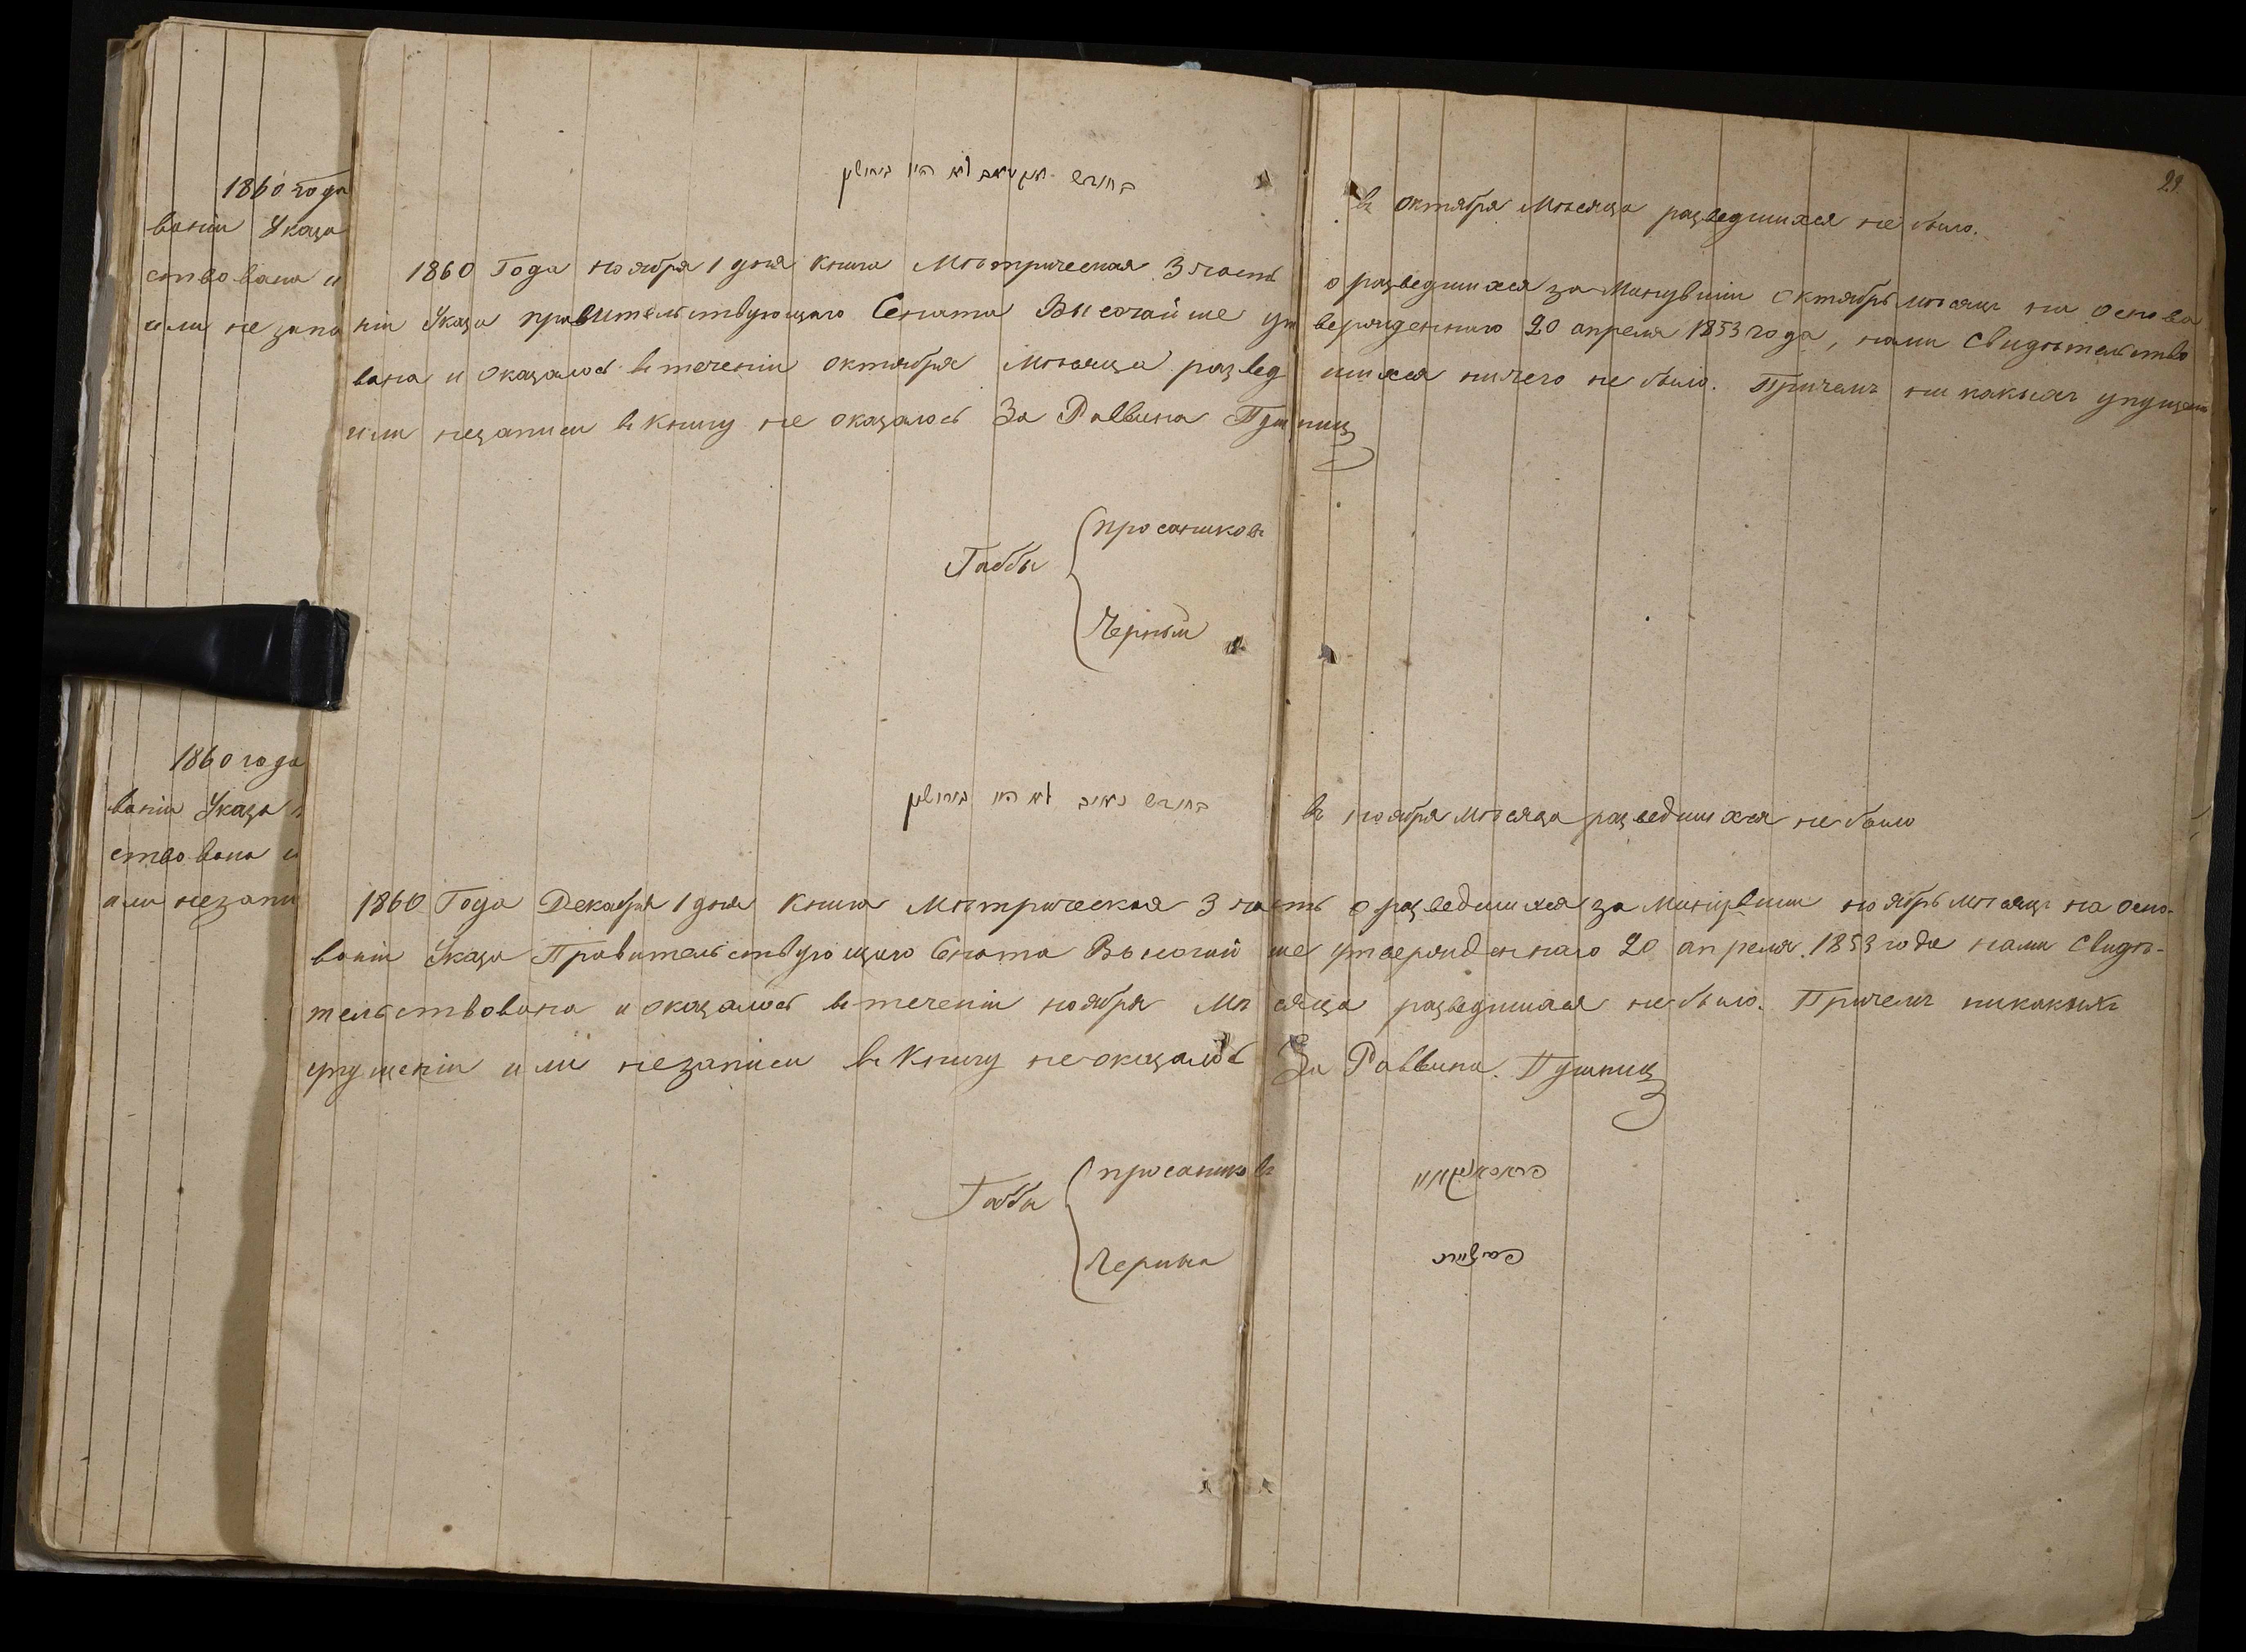 29
1860 года
ваніи Указа
ствована и
или не запи
בחודש אקטאבר לא היו גירושין
въ октября Мѣсяца разведшихся не было.
1860 Года ноября 1 дня книга Мѣтрическая 3 часть о разведшихся за Минувшіи Октябрь мѣсяцъ на основа
ніи Указа правительствующаго Сената Высочайше утвержденнаго 20 апреля 1853 года, нами Свидѣтельство
вана и оказалось втеченіи октября Мѣсяца разведшихся ничего не было. Причемъ ни какихъ упущеніи
или незаписи в книгу не оказалось За Раввина Пушниц
Габбы
просаниковъ
Черный
1860 года
ваніи Указа
ствована и
или незапи
בחודש נאיאב לא היו גירושין
въ ноября мѣсяца разведшихся не было
1860 Года Декабря 1 дня книга Мѣтрическая 3 часть о разведшихся за минувшіи ноябрь мѣсяцъ на осно-
ваніи Указа Правительствующаго Сената Высочайше утвержденнаго 20 апреля 1853 года нами Свидѣ-
тельствована и оказалось втеченіи ноября Мѣсяца разведшихся не было. Причемъ никакихъ
упущеніи или незаписи в Книгу не оказалось За Раввина. Пушниц
Габбы
просаниковъ